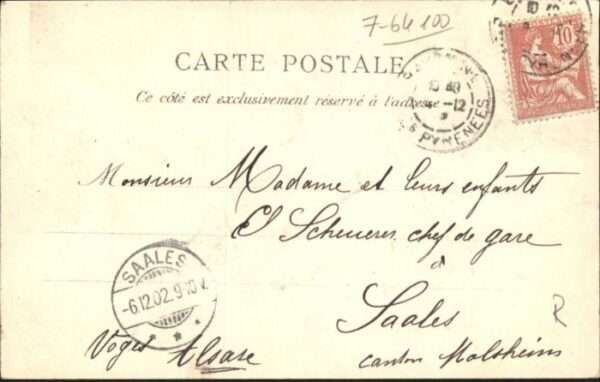 7-64 100
CARTE POSTALE
Ce côté est exclusivement réservé à l'adresse
10
PYRÉNÉES
12
10
Monsieur Madame et leurs enfants
El Scheuerer chef de gare
à
Saales
canton Molsheim
Voges Alsace
SAALES
-6.12.02.9-10V.
R